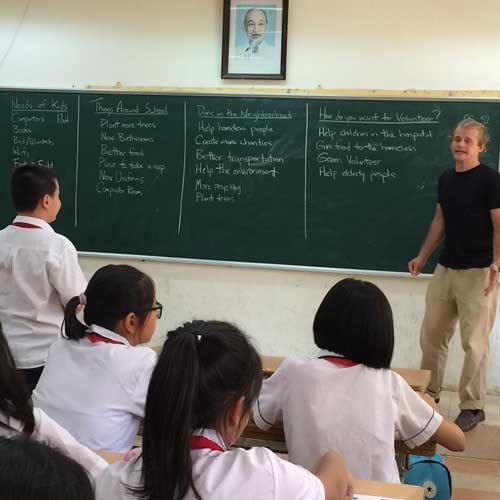 Needs of Kids
Computers Pool
Books
Wifi
Things Around School
Plant more trees
New Bathrooms
Better food
Place to take a nap
New Uniforms
Computer Room
Done in the Neighborhood
Help homeless people
Create more charities
Better transportation
Help the environment
More recycling
Plant trees
How do you want to Volunteer?
Help children in the hospital
Give food to the homeless
Green Volunteer
Help elderly people